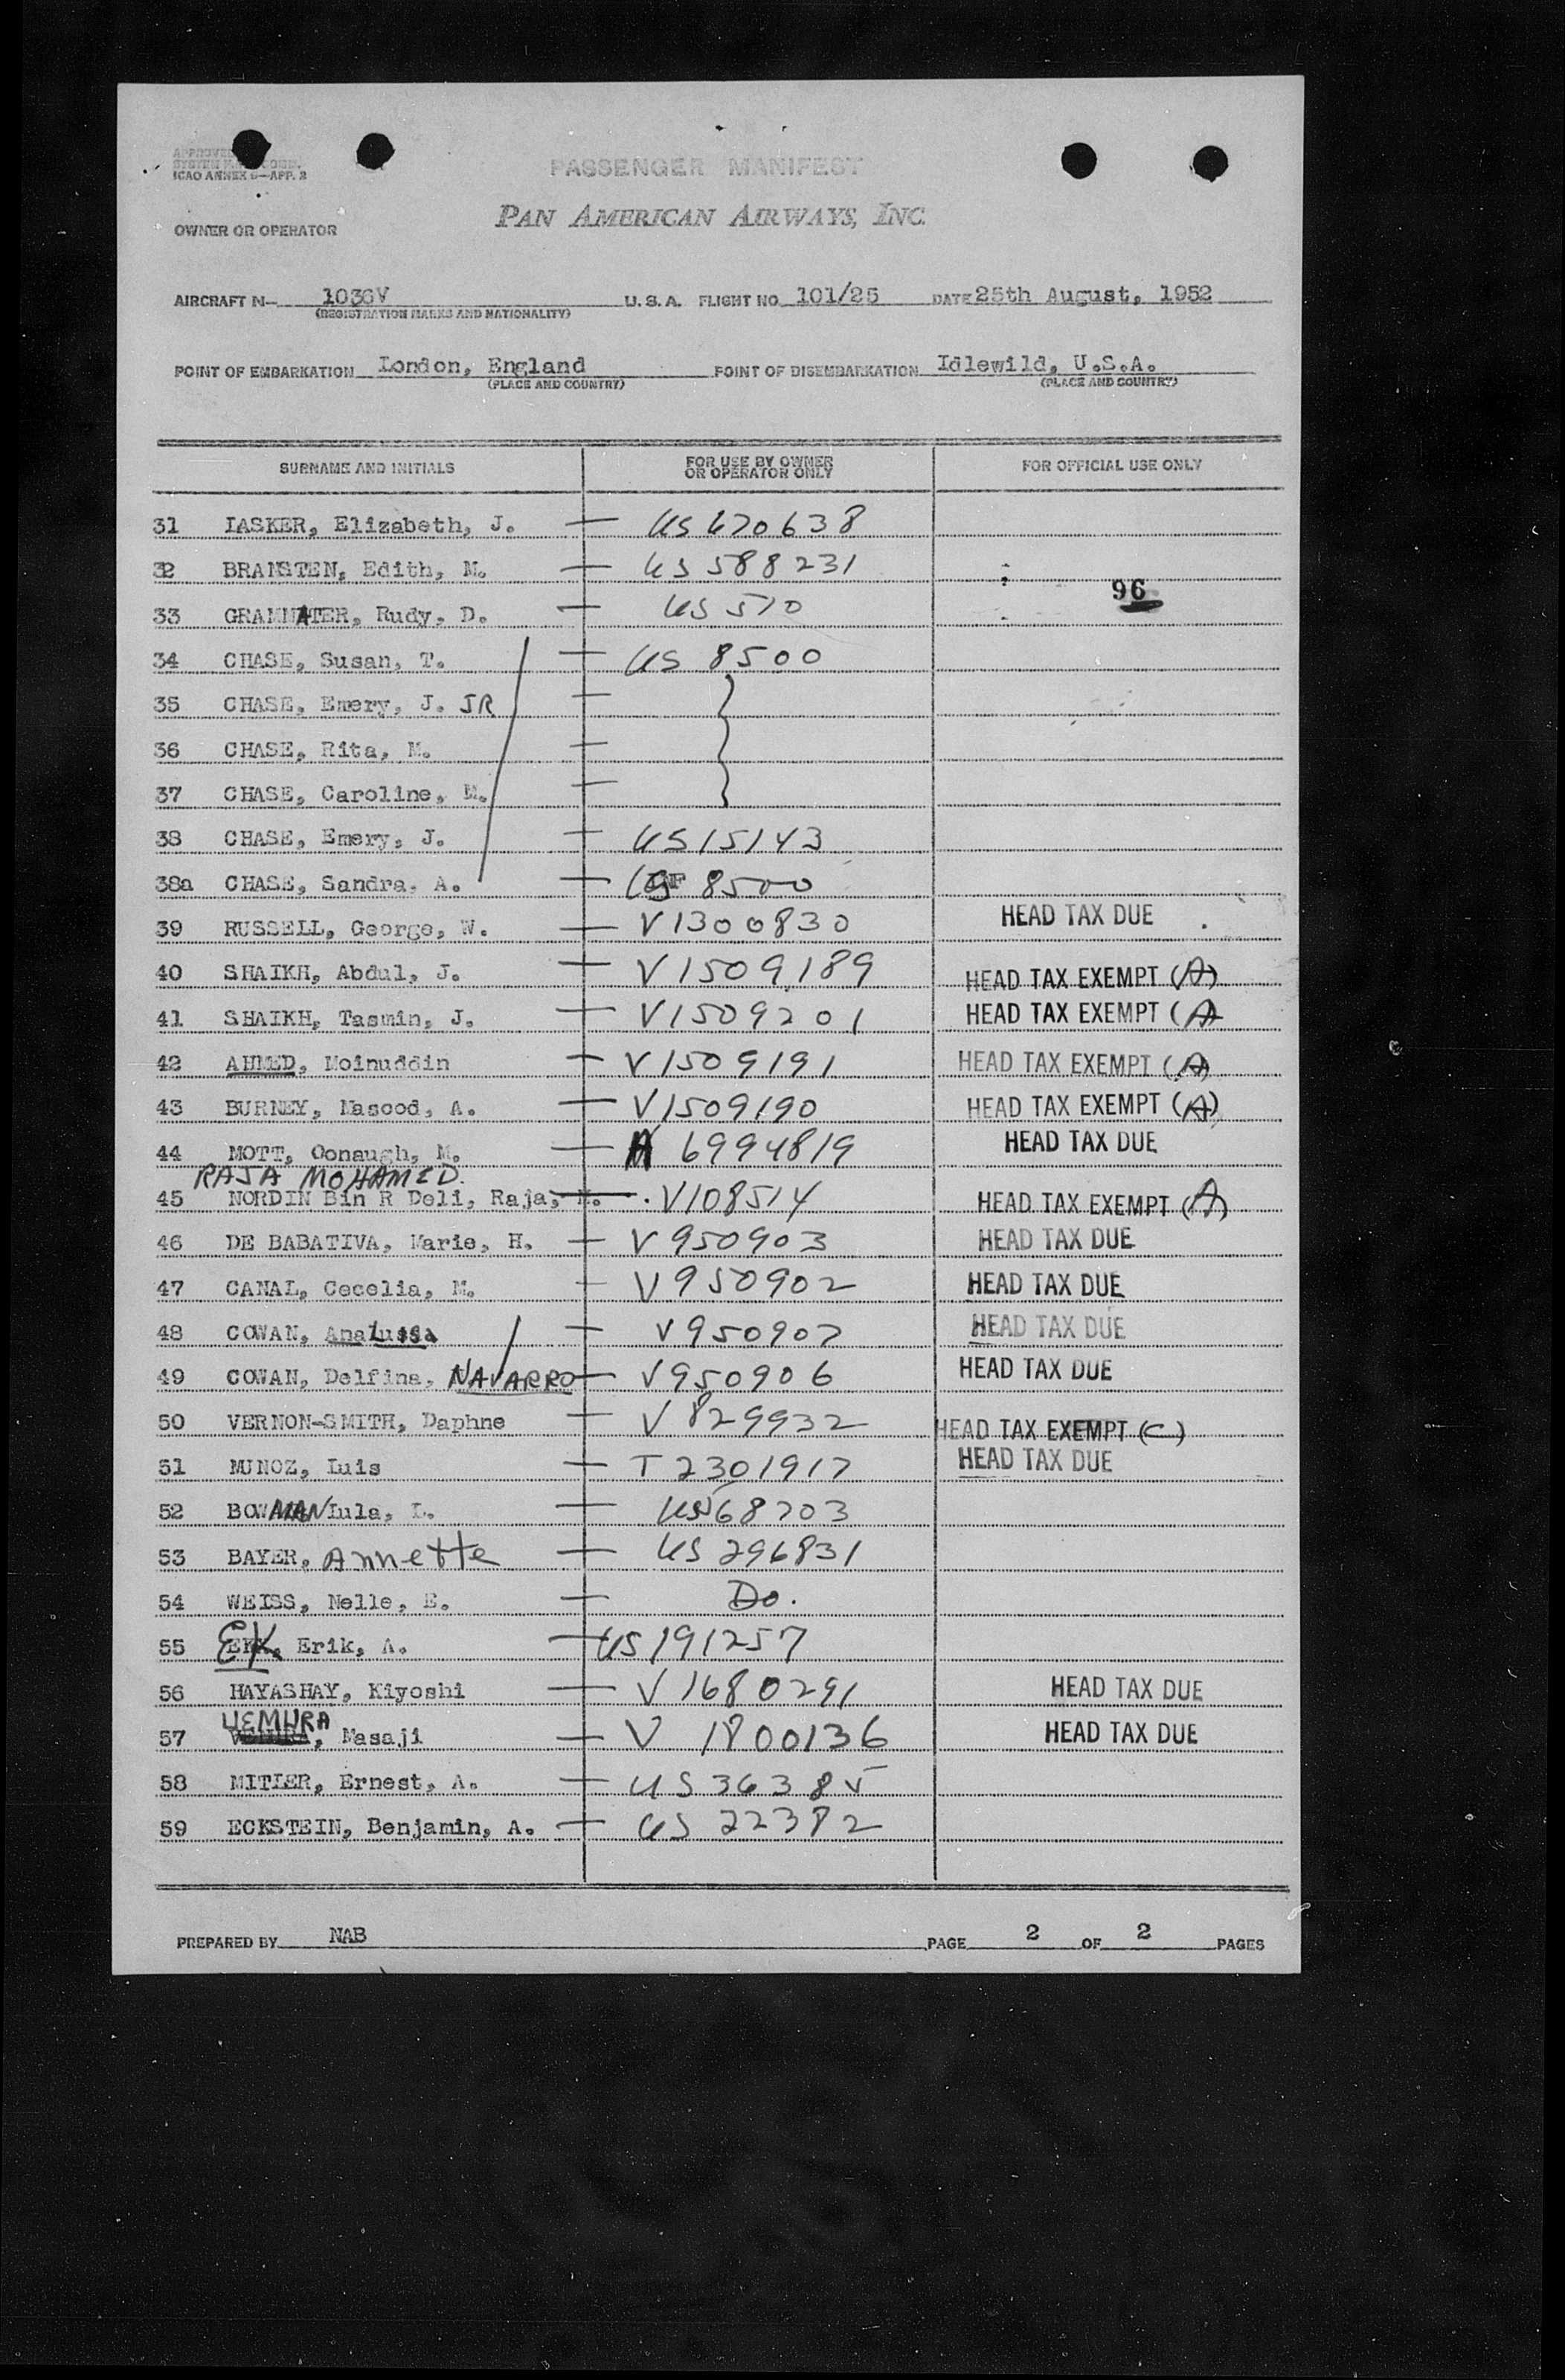 APPROVED
SYSTEM
ICAO ANNEX 9—APP. 2
PASSENGER MANIFEST
PAN AMERICAN AIRWAYS, INC.
OWNER OR OPERATOR
AIRCRAFT N— 1036V U. S. A. FLIGHT NO. 101/25 DATE 25th August, 1952
(REGISTRATION MARKS AND NATIONALITY)
POINT OF EMBARKATION London, England POINT OF DISEMBARKATION Idlewild, U.S.A.
(PLACE AND COUNTRY) (PLACE AND COUNTRY)
SURNAME AND INITIALS FOR USE BY OWNER OR OPERATOR ONLY FOR OFFICIAL USE ONLY
31 LASKER, Elizabeth, J. — US 670638
32 BRANSTEN, Edith, M. — US 588231
96
33 GRAMMATER, Rudy, D. — US 510
34 CHASE, Susan, T. — US 8500
35 CHASE, Emery, J. JR —
36 CHASE, Rita, M. —
37 CHASE, Caroline, M. —
38 CHASE, Emery, J. — US 15143
38a CHASE, Sandra, A. — US 8500
39 RUSSELL, George, W. — V1300830 HEAD TAX DUE
40 SHAIKH, Abdul, J. — V1509189 HEAD TAX EXEMPT (A)
41 SHAIKH, Tasmin, J. — V1509201 HEAD TAX EXEMPT (A
42 AHMED, Moinuddin — V1509191 HEAD TAX EXEMPT (A)
43 BURNEY, Masood, A. — V1509190 HEAD TAX EXEMPT (A)
44 MOTT, Oonaugh, M. — A 6994819 HEAD TAX DUE
RAJA MOHAMED.
45 NORDIN Bin R Deli, Raja, M. — V108514 HEAD TAX EXEMPT (A)
46 DE BABATIVA, Marie, H. — V950903 HEAD TAX DUE
47 CANAL, Cecelia, M. — V950902 HEAD TAX DUE
48 COWAN, Analussa — V950907 HEAD TAX DUE
49 COWAN, Delfina, NAVARRO — V950906 HEAD TAX DUE
50 VERNON-SMITH, Daphne — V829932 HEAD TAX EXEMPT (C)
51 MUNOZ, Luis — T2301917 HEAD TAX DUE
52 BOWMAN Lula, L. — US 68703
53 BAYER, Annette — US 296831
54 WEISS, Nelle, E. — Do.
55 EK, Erik, A. — US 191257
56 HAYASHAY, Kiyoshi — V1680291 HEAD TAX DUE
UEMURA
57 , Masaji — V 1800136 HEAD TAX DUE
58 MITLER, Ernest, A. — US 36385
59 ECKSTEIN, Benjamin, A. — US 22382
PREPARED BY NAB PAGE 2 OF 2 PAGES